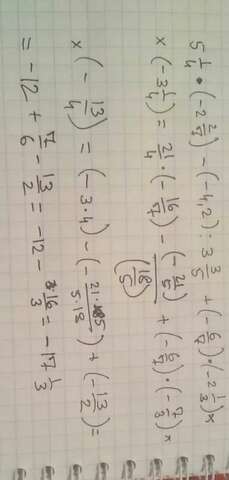 5 1/4 · (-2 2/7) - (-4,2) : 3 3/5 + (-6/7) · (-2 1/3) ×
× (-3 1/4) = 21/4 · (-16/7) - (-21/5)/(18/5) + (-6/7) · (-7/3) ×
× (-13/4) = (-3·4) - (-21·5/5·18) + (-13/2) =
= -12 + 7/6 - 13/2 = -12 - 16/3 = -17 1/3